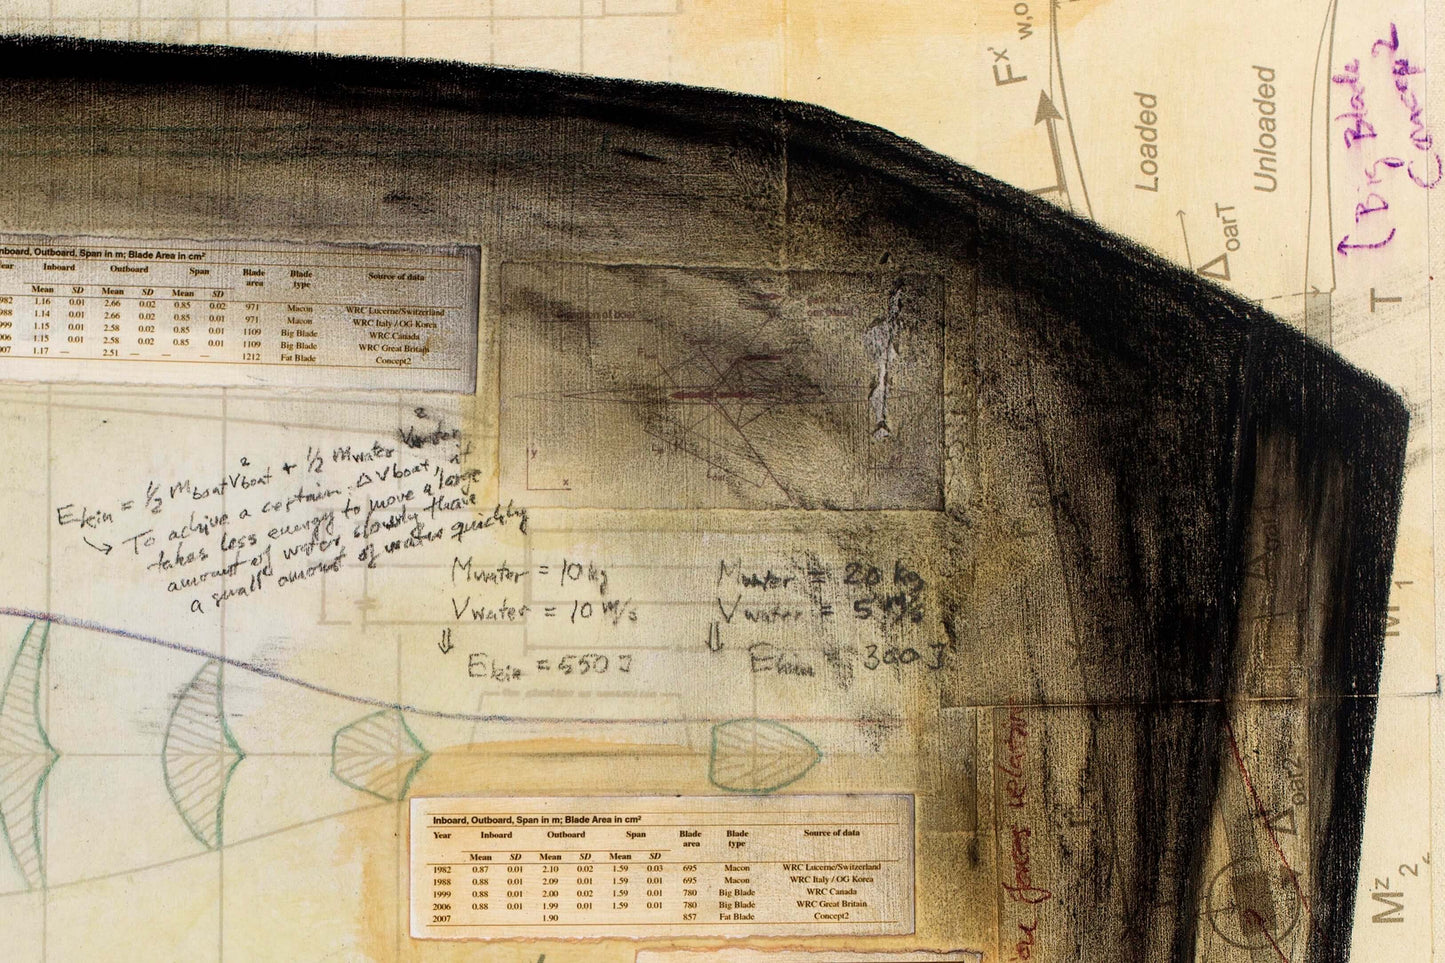 F x' w,o
Loaded
Unloaded
Big Blade
Concept 2
Δ oarT
T
Inboard, Outboard, Span in m; Blade Area in cm²
Year Inboard Outboard Span Blade area Blade type Source of data
Mean SD Mean SD Mean SD
1982 1.16 0.01 2.66 0.02 0.85 0.02 971 Macon WRC Lucerne/Switzerland
1988 1.14 0.01 2.66 0.02 0.85 0.01 971 Macon WRC Italy / OG Korea
1999 1.15 0.01 2.58 0.02 0.85 0.01 1109 Big Blade WRC Canada
2006 1.15 0.01 2.58 0.02 0.85 0.01 1109 Big Blade WRC Great Britain
2007 1.17 — 2.51 — — — 1212 Fat Blade Concept2
y
x
Ekin = ½ Mboat Vboat² + ½ Mwater Vwater²
To achive a certain ΔVboat, it
takes less energy to move a large
amount of water slowly than
a small amount of water quickly
Mwater = 10 kg
Vwater = 10 m/s
⇓
Ekin = 550 J
Mwater = 20 kg
Vwater = 5 m/s
⇓
Ekin = 300 J
M 1
Δ oar2
M z 2
Inboard, Outboard, Span in m; Blade Area in cm²
Year Inboard Outboard Span Blade area Blade type Source of data
Mean SD Mean SD Mean SD
1982 0.87 0.01 2.10 0.02 1.59 0.03 695 Macon WRC Lucerne/Switzerland
1988 0.88 0.01 2.09 0.01 1.59 0.01 695 Macon WRC Italy / OG Korea
1999 0.88 0.01 2.00 0.02 1.59 0.01 780 Big Blade WRC Canada
2006 0.88 0.01 1.99 0.01 1.59 0.01 780 Big Blade WRC Great Britain
2007 1.90 857 Fat Blade Concept2